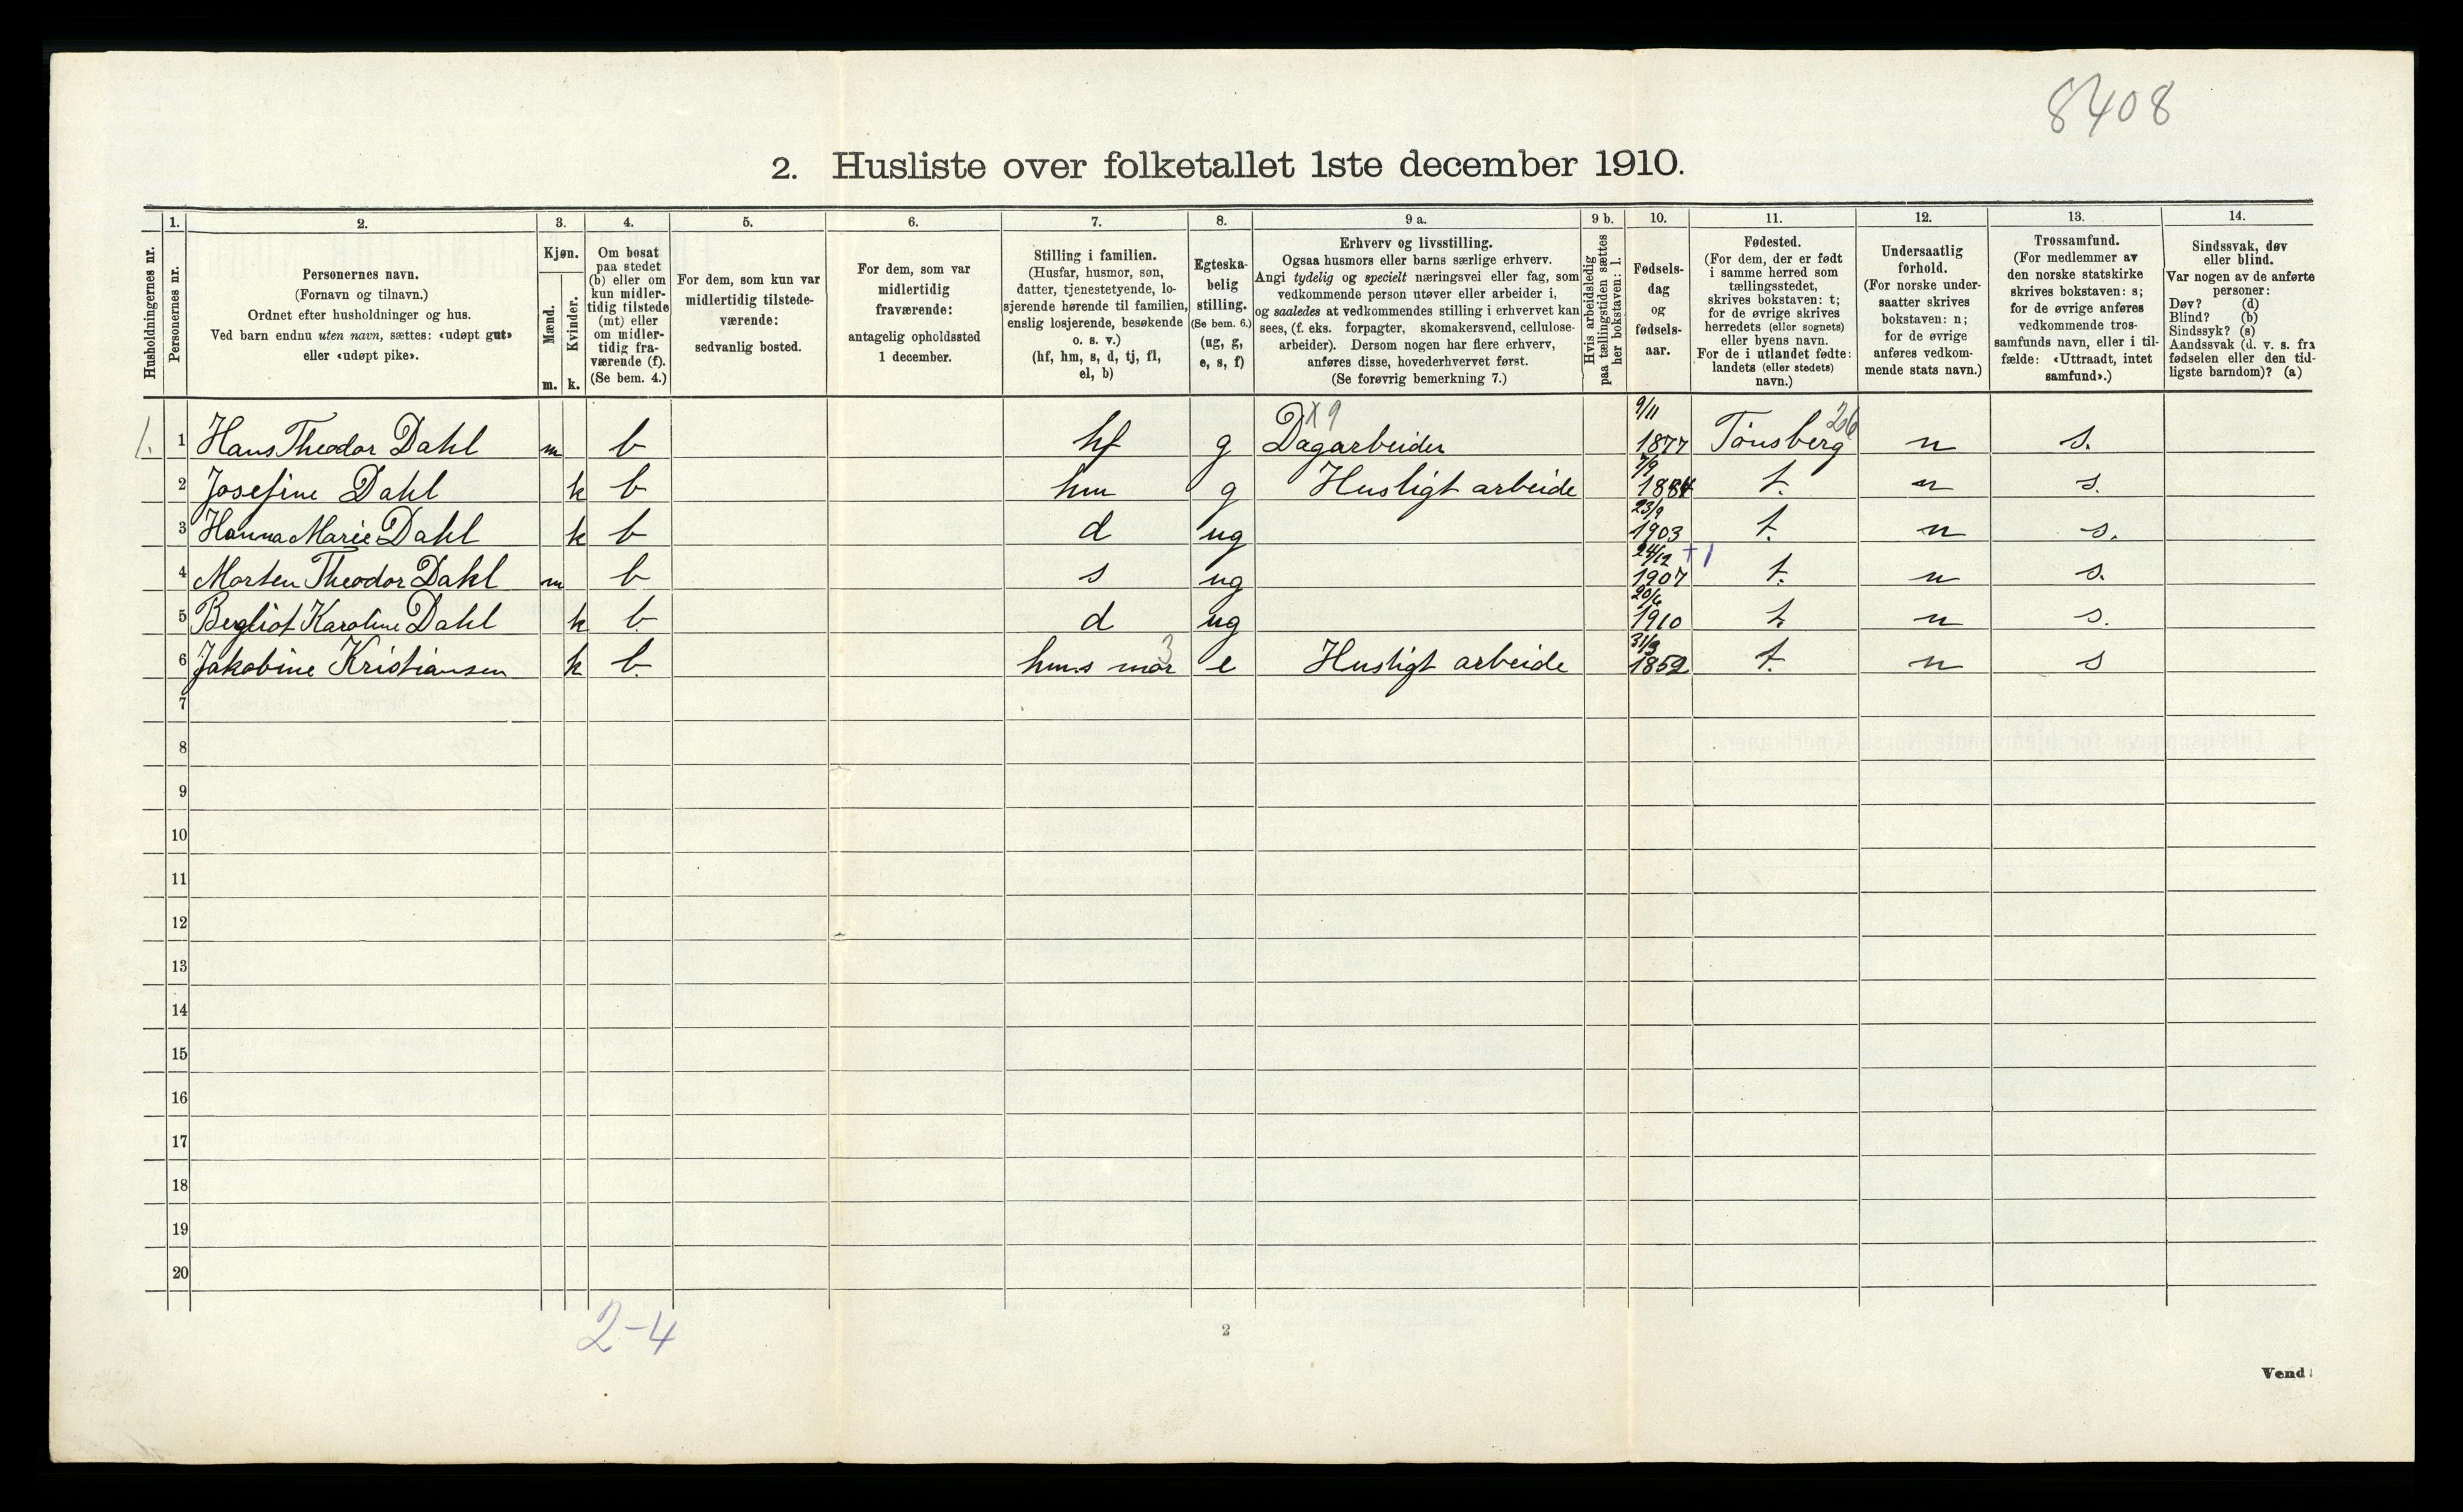 8408
2. Husliste over folketallet 1ste december 1910.
Husholdningernes nr.
1.
Personernes nr.
2.
Personernes navn.
(Fornavn og tilnavn.)
Ordnet efter husholdninger og hus.
Ved barn endnu uten navn, sættes: «udøpt gut»
eller «udøpt pike».
3.
Kjøn.
Mænd.
Kvinder.
m. k.
4.
Om bosat
paa stedet
(b) eller om
kun midler-
tidig tilstede
(mt) eller
om midler-
tidig fra-
værende (f).
(Se bem. 4.)
5.
For dem, som kun var
midlertidig tilstede-
værende:
sedvanlig bosted.
6.
For dem, som var
midlertidig
fraværende:
antagelig opholdssted
1 december.
7.
Stilling i familien.
(Husfar, husmor, søn,
datter, tjenestetyende, lo-
sjerende hørende til familien,
enslig losjerende, besøkende
o. s. v.)
(hf, hm, s, d, tj, fl,
el, b)
8.
Egteska-
belig
stilling.
(Se bem. 6.)
(ug, g,
e, s, f)
9 a.
Erhverv og livsstilling.
Ogsaa husmors eller barns særlige erhverv.
Angi tydelig og specielt næringsvei eller fag, som
vedkommende person utøver eller arbeider i,
og saaledes at vedkommendes stilling i erhvervet kan
sees, (f. eks. forpagter, skomakersvend, cellulose-
arbeider). Dersom nogen har flere erhverv,
anføres disse, hovederhvervet først.
(Se forøvrig bemerkning 7.)
9 b.
Hvis arbeidsledig
paa tællingstiden sættes
her bokstaven: l.
10.
Fødsels-
dag
og
fødsels-
aar.
11.
Fødested.
(For dem, der er født
i samme herred som
tællingsstedet,
skrives bokstaven: t;
for de øvrige skrives
herredets (eller sognets)
eller byens navn.
For de i utlandet fødte:
landets (eller stedets)
navn.)
12.
Undersaatlig
forhold.
(For norske under-
saatter skrives
bokstaven: n;
for de øvrige
anføres vedkom-
mende stats navn.)
13.
Trossamfund.
(For medlemmer av
den norske statskirke
skrives bokstaven: s;
for de øvrige anføres
vedkommende tros-
samfunds navn, eller i til-
fælde: «Uttraadt, intet
samfund».)
14.
Sindssvak, døv
eller blind.
Var nogen av de anførte
personer:
Døv? (d)
Blind? (b)
Sindssyk? (s)
Aandssvak (d. v. s. fra
fødselen eller den tid-
ligste barndom)? (a)
1. 1 Hans Theodor Dahl m b hf g Dagarbeider X 9 9/11 1877 Tønsberg 26 n s.
2 Josefine Dahl k b hm g Husligt arbeide 7/9 1884 t. n s.
3 Hanna Marie Dahl k b d ug 23/9 1903 t. n s.
4 Morten Theodor Dahl m b s ug 24/12 1907 +1 t. n s.
5 Bergliot Karoline Dahl k b. d ug 20/6 1910 t. n s.
6 Jakobine Kristiansen k b. hm.s mor 3 e Husligt arbeide 31/3 1852 t. n s
7
8
9
10
11
12
13
14
15
16
17
18
19
20
2-4
2
Vend!